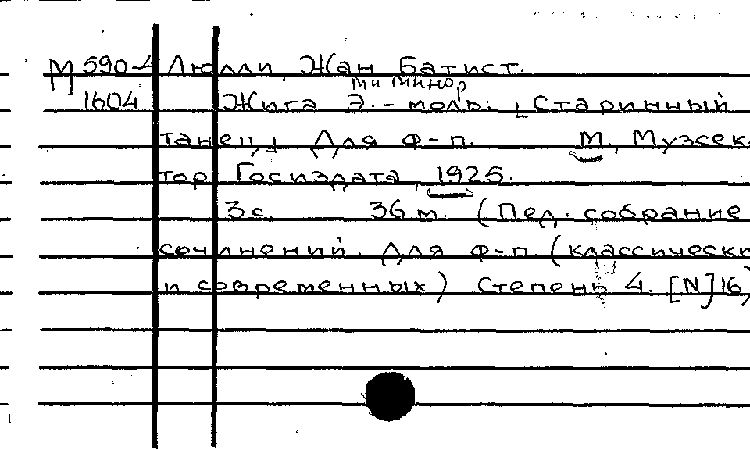 М 590-4 Люлли, Жан Батист.
ми минор
1604 Жига Э.-моль. [Старинный
танец]. Для ф-п. М., Музсек-
тор Госиздата, 1925.
3 с. 36 м. (Пед. собрание
сочинений. Для ф-п. (классически
и современных) Степень 4. [N]16)